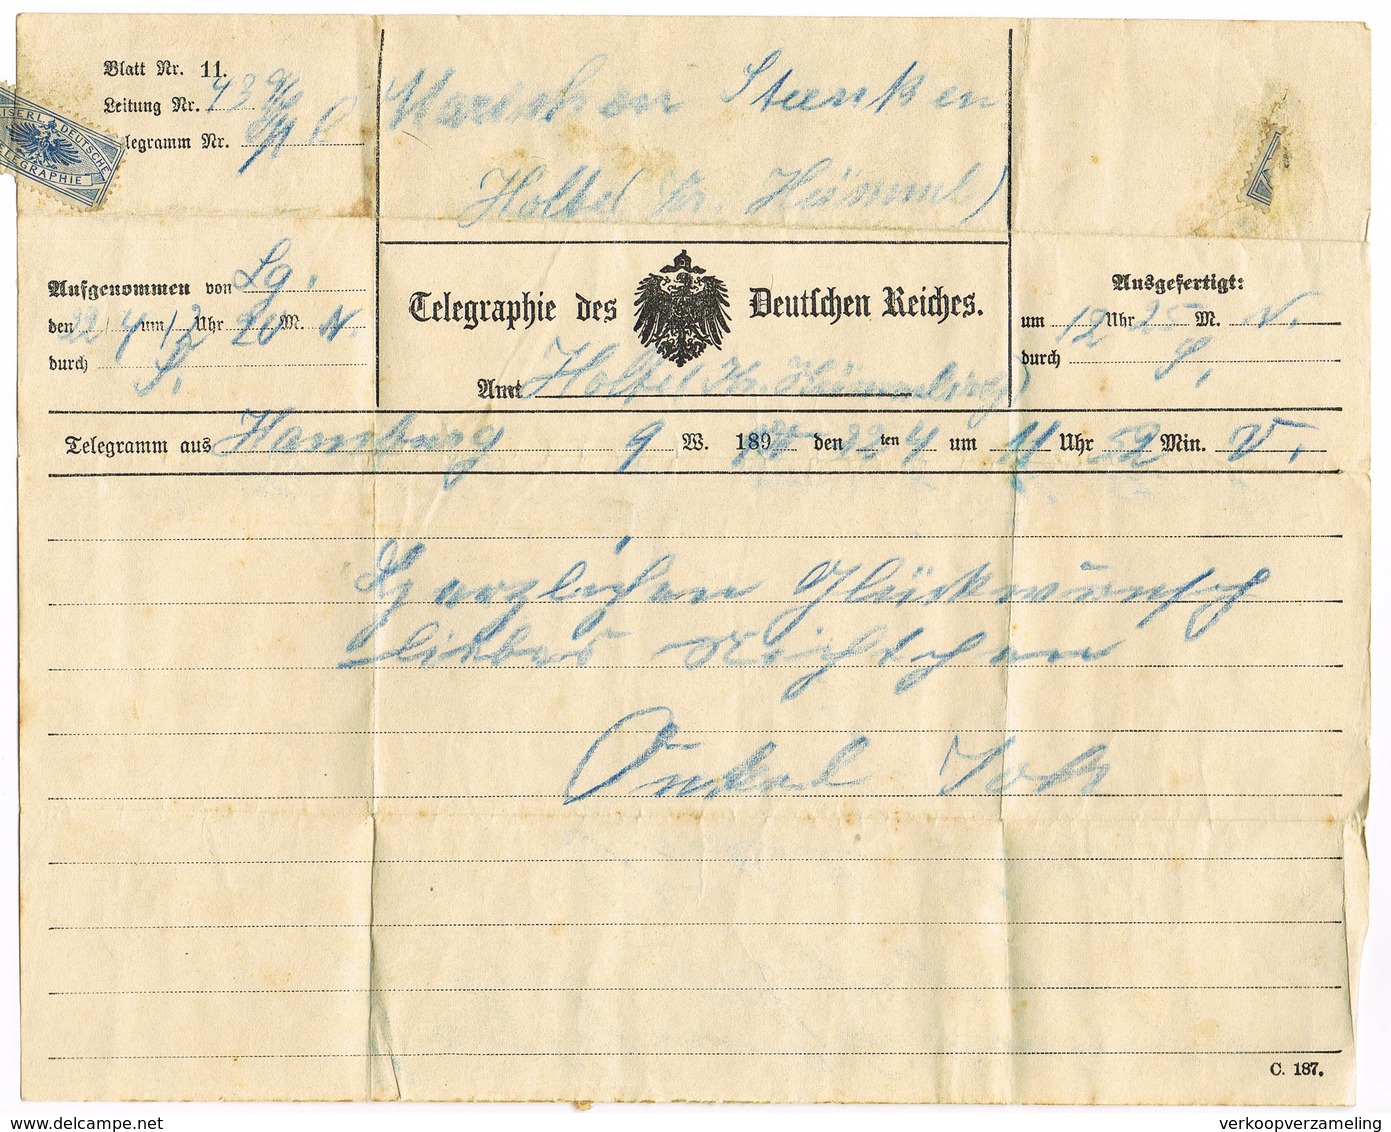 Blatt Nr. 11.
Leitung Nr. 43
Telegramm Nr.
KAISERL. DEUTSCHE
TELEGRAPHIE
Marichen Stenken
Holte (Kr. Hümml)
Aufgenommen von Lg.
den 22/4 um 12 Uhr 20 M. N.
durch S.
Telegraphie des Deutschen Reiches.
Amt Holte (Kr. Hümmling)
Ausgefertigt:
um 12 Uhr 25 M. N.
durch
Telegramm aus Hamburg 9 W. 189 den 22ten 4 um 11 Uhr 52 Min. V.
Herzlichen Glückwunsch
liebes Nichtchen
Onkel Joh
C. 187.
verkoopverzameling